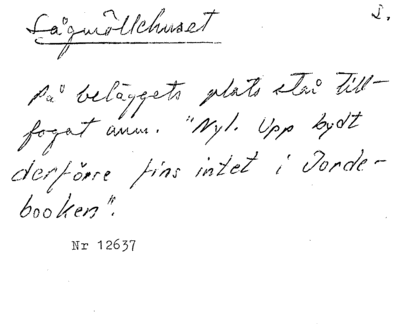 Lågmöllehuset
I.
På beläggets plats står till-
fogat anm. "Nyl. Upp bydt
derföre fins intet i Jorde-
booken".
Nr 12637